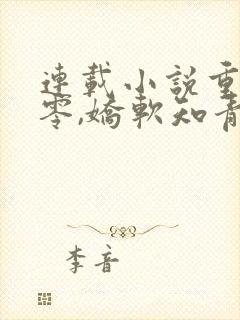 連載小說重
零,嬌軟知青
李音